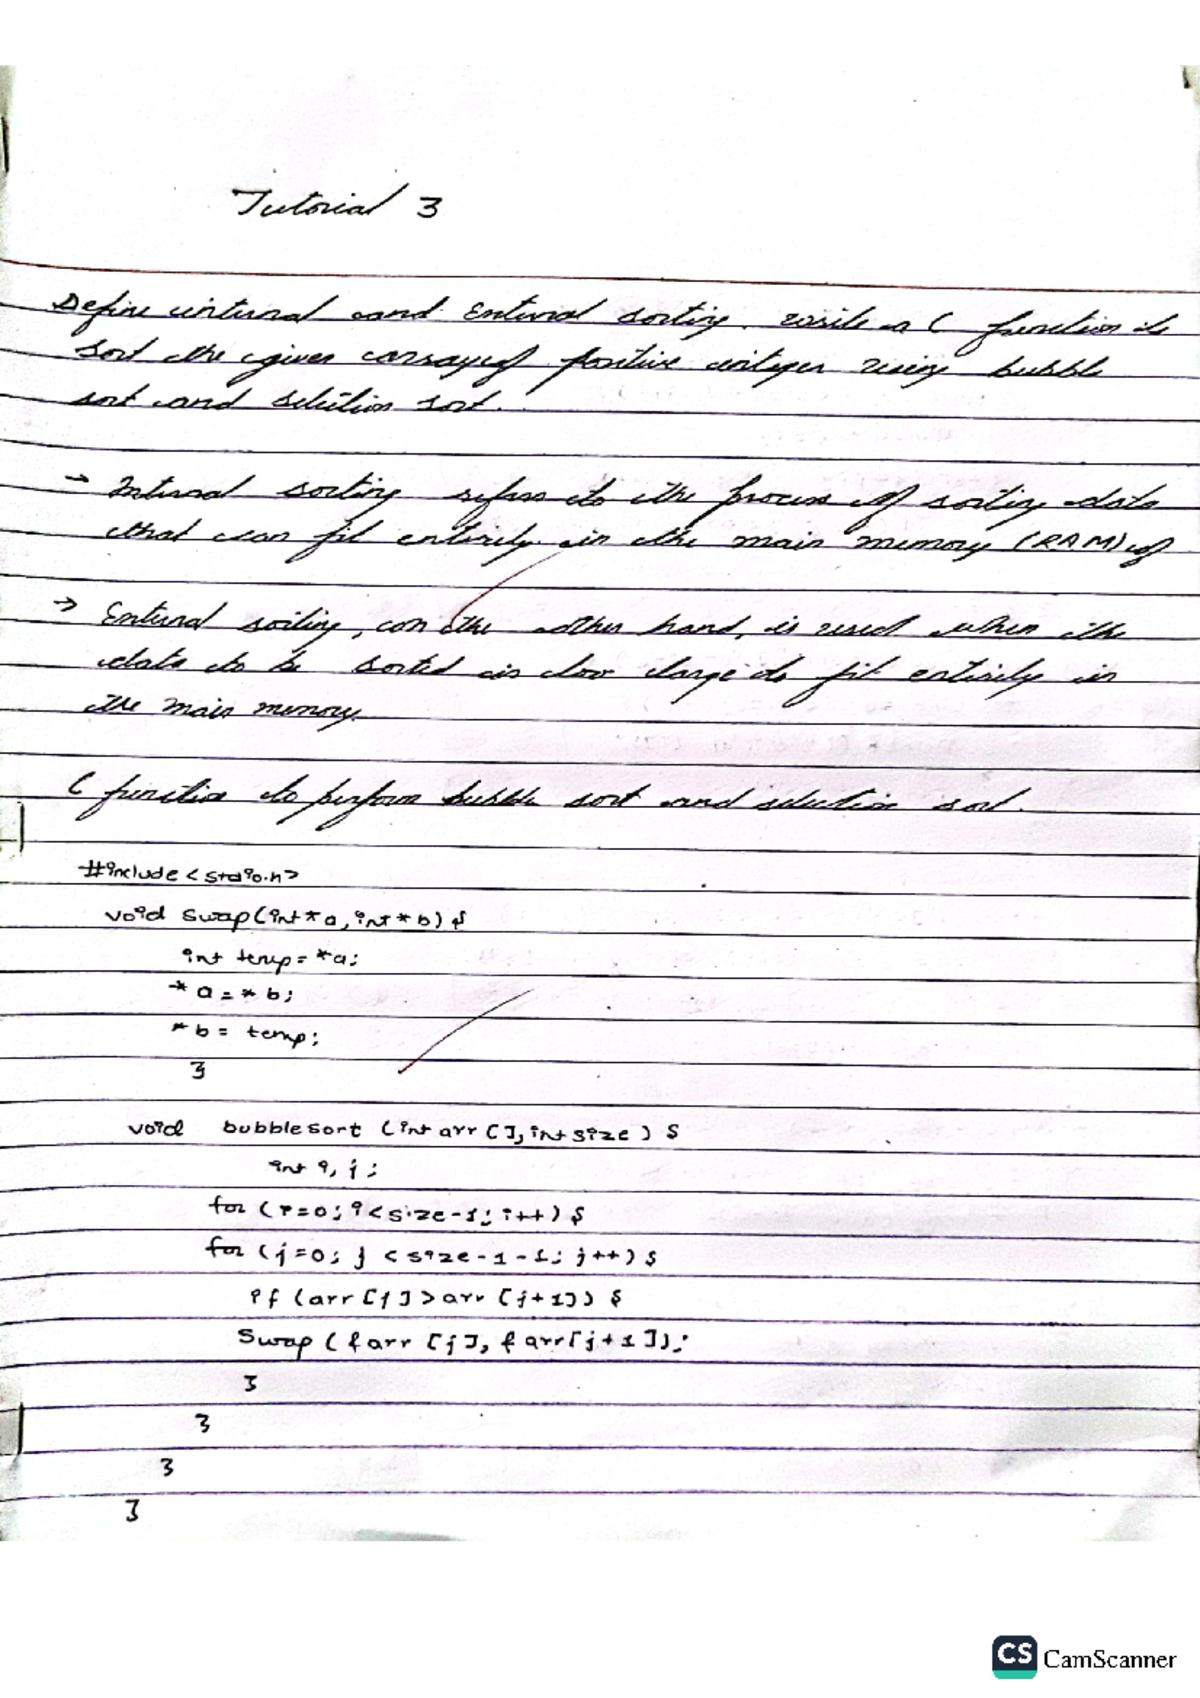 Tutorial 3
Define internal and External sorting. write a C function to
sort the given array of positive integer using bubble
sort and selection sort.
→ Internal sorting refers to the process of sorting data
that can fit entirely in the main memory (RAM) of
→ External sorting, on the other hand, is used when the
data to be sorted is too large to fit entirely in
the main memory.
C function to perform bubble sort and selection sort.
#include <stdio.h>
void swap(int *a, int *b) {
int temp = *a;
*a = *b;
*b = temp;
}
void bubblesort (int arr [], int size) {
int i, j;
for (i=0; i<size-1; i++) {
for (j=0; j < size-1-1; j++) {
if (arr [j] > arr [j+1]) {
Swap (&arr [j], &arr[j+1]);
}
}
}
}
CS CamScanner